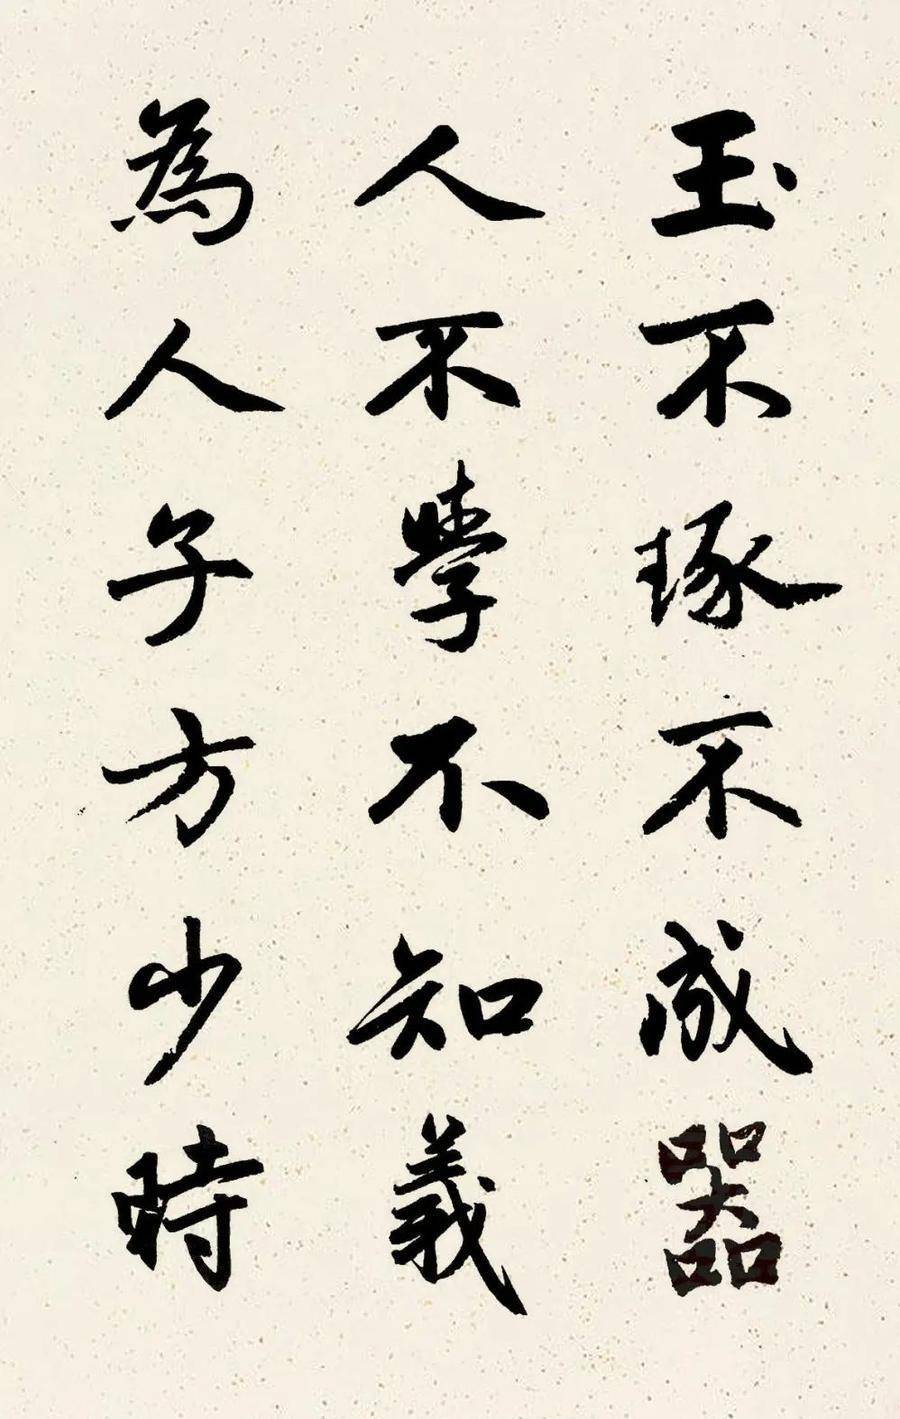 玉不琢不成器
人不學不知義
為人子方少時